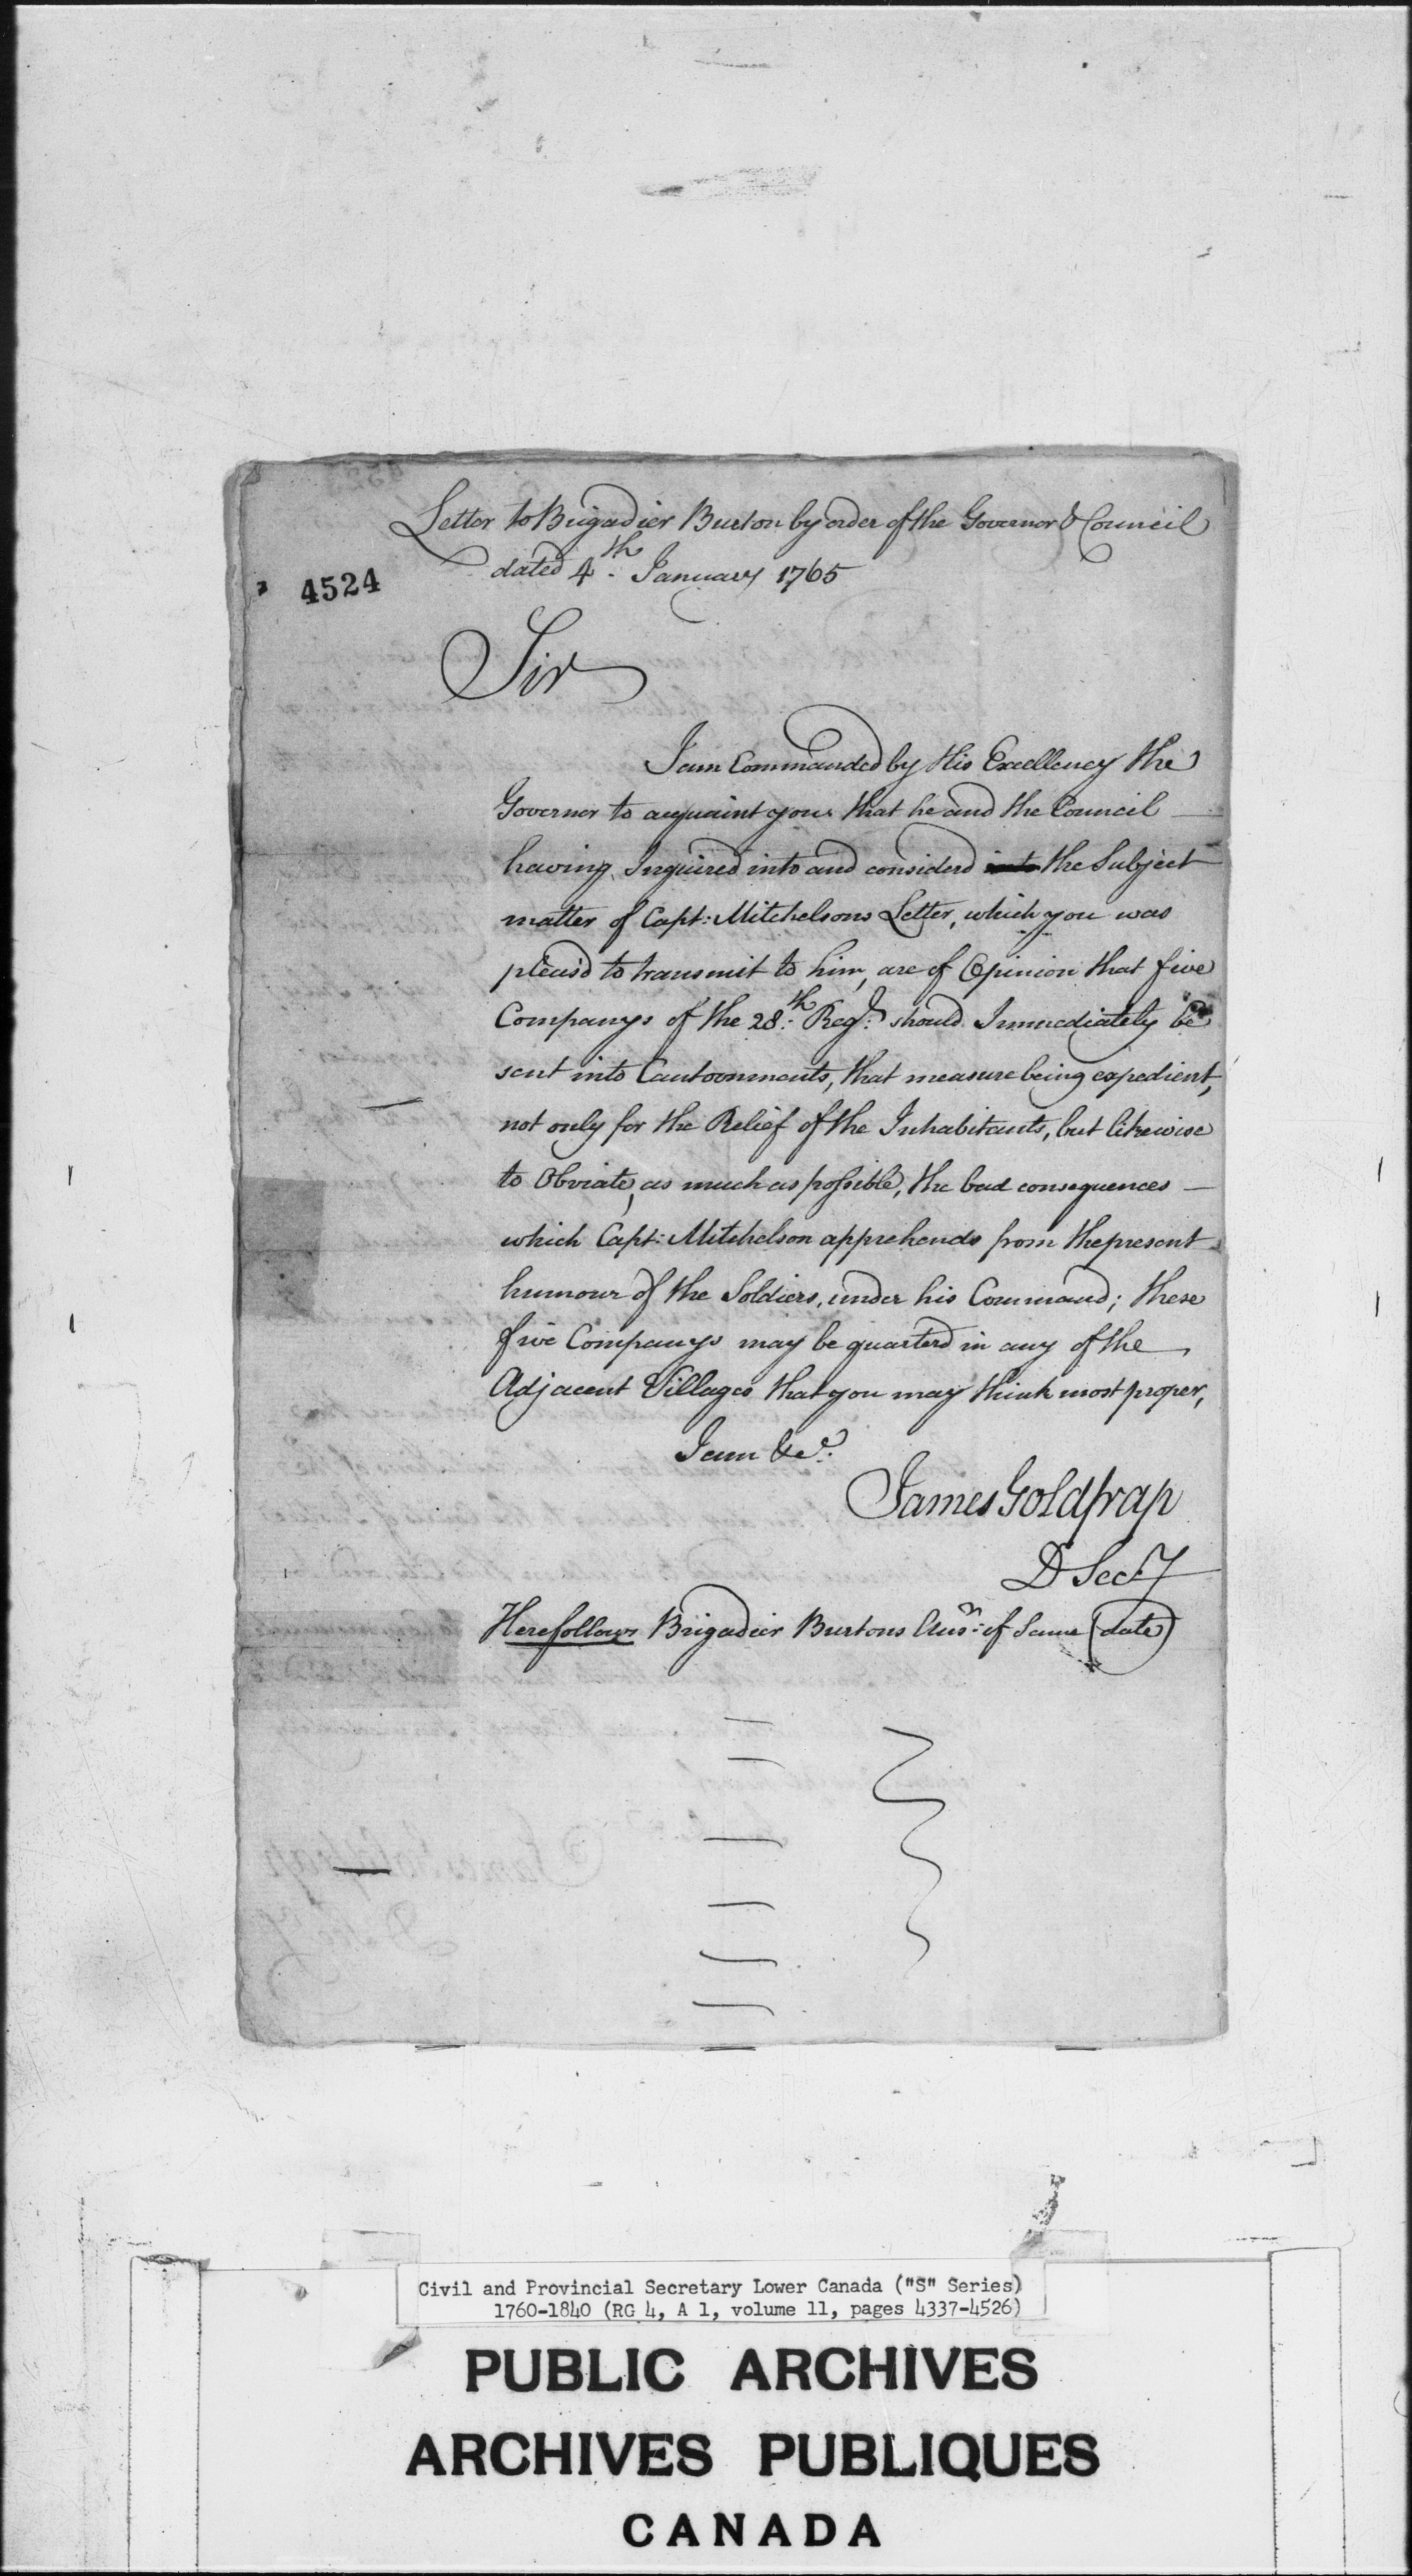 Letter to Brigadier Burton by order of the Governor & Council
dated 4th January 1765
4524
Sir
I am Commanded by His Excellency the
Governor to acquaint you that he and the Council
having Inquired into and considerd into the Subject
matter of Capt: Mitchelsons Letter, which you was
pleas'd to transmit to him, are of Opinion that five
Companys of the 28:th Regt: should Immediately be
sent into Cantoonments, that measure being expedient,
not only for the Relief of the Inhabitants, but likewise
to Obviate, as much as possible, the bad consequences
which Capt: Mitchelson apprehends from the present
humour of the Soldiers, under his Command; these
five Companys may be quarterd in any of the
Adjacent Villages that you may think most proper,
I am &c.
James Goldfrap
D Secry
Here follows Brigadier Burtons Ansr: of Same (date)
Civil and Provincial Secretary Lower Canada ("S" Series)
1760-1840 (RG 4, A 1, volume 11, pages 4337-4526)
PUBLIC ARCHIVES
ARCHIVES PUBLIQUES
CANADA